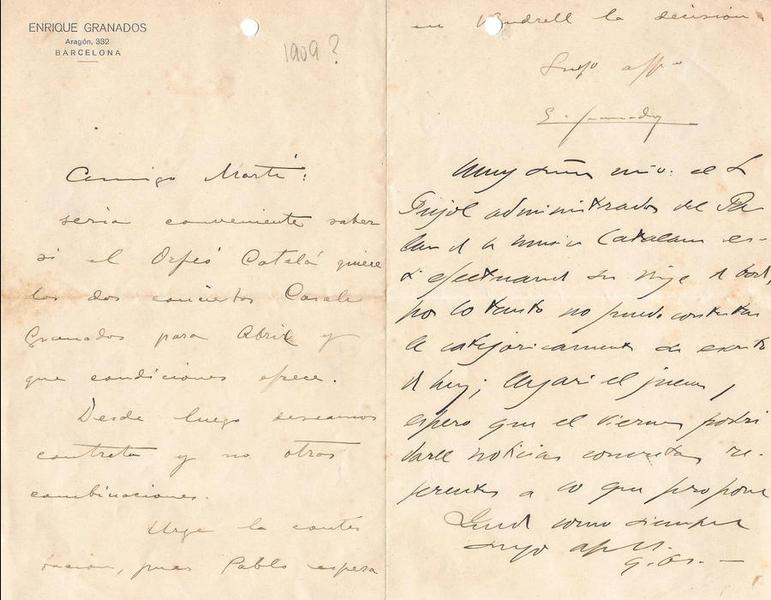 ENRIQUE GRANADOS
Aragón, 332
BARCELONA
1909?
Amigo Martí:
sería conveniente saber
si el Orfeó Catalá quiere
los dos conciertos Casals
Granados para Abril y
que condiciones ofrece.
Desde luego deseamos
contrata y no otras
combinaciones.
Urge la contes
tacion, pues Pablo espera
en Vendrell la decisión
Suyo affmo
E. Granados
Muy señor mío: el S.
Pujol administrador del Pa
lau d la música Catalana es-
á efectuand su viaje d
por lo tanto no puedo contestar
le categoricamente
d hoy; llegará el jueves,
espero que el viernes podré
darle noticias concretas re-
ferentes a lo que propone
Qued como siempre
suyo